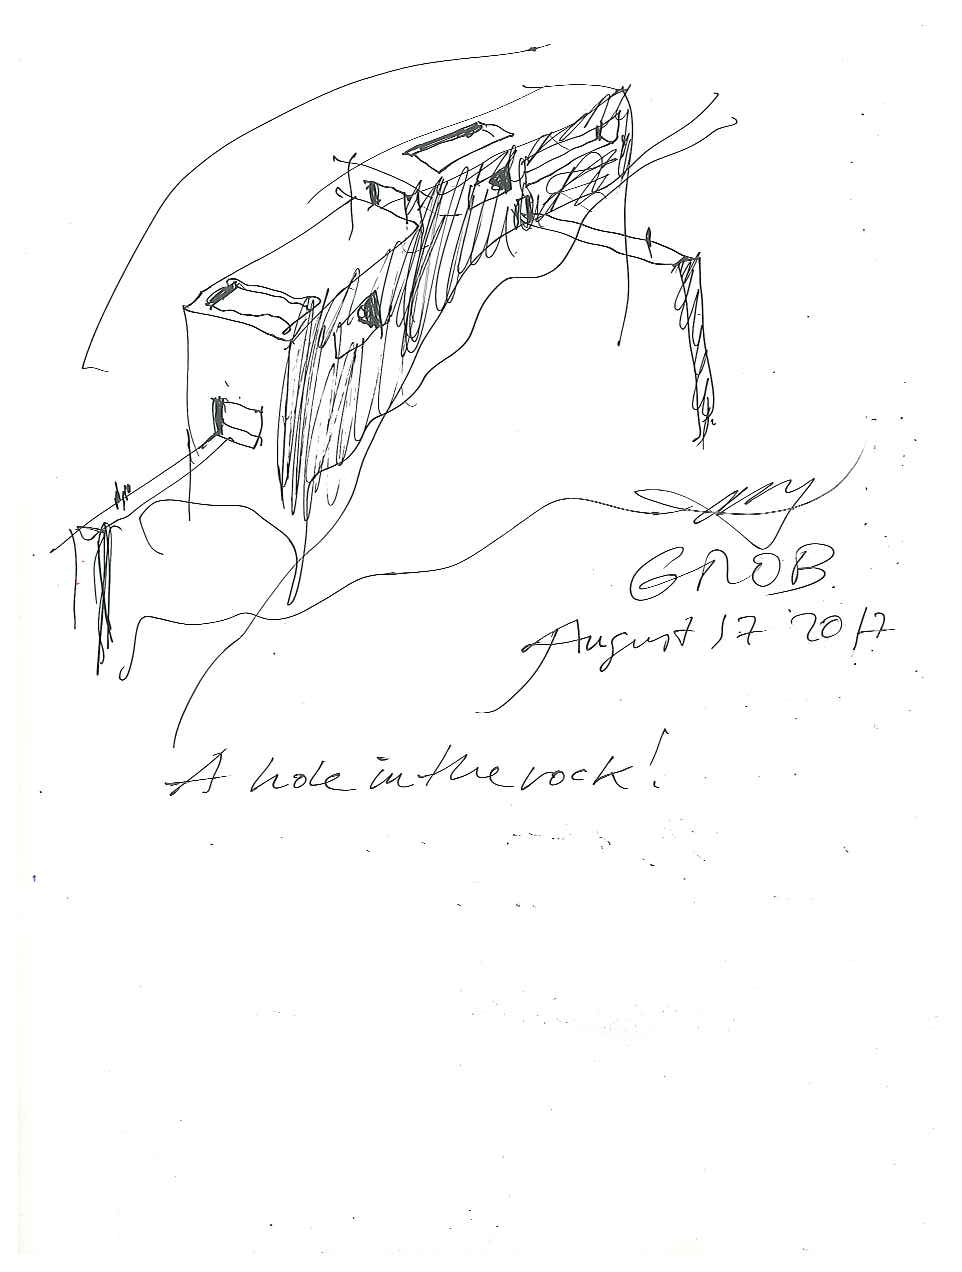 GROB
August 17 2017
A hole in the rock!